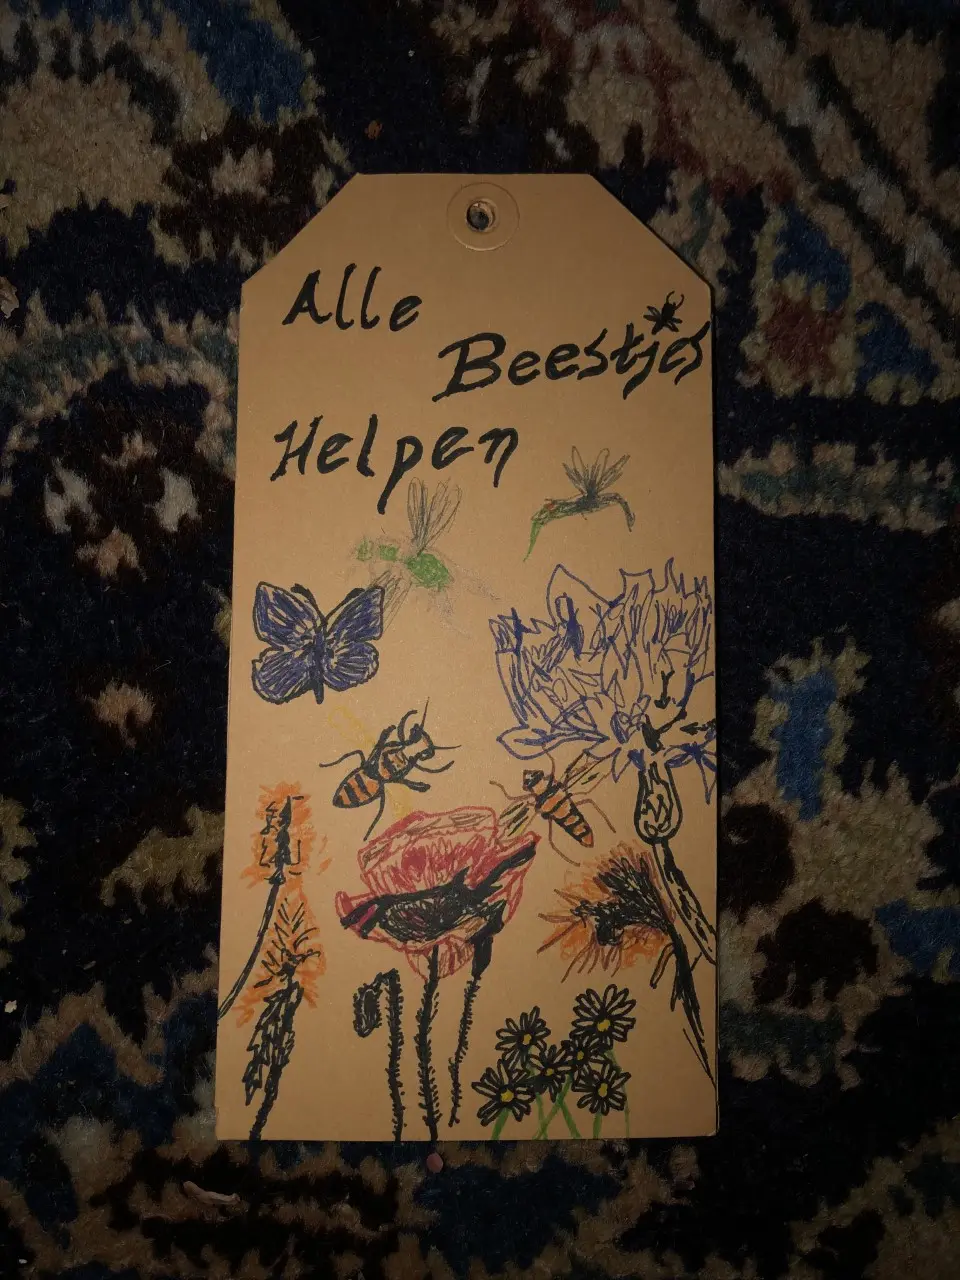 Alle
Beestjes
Helpen